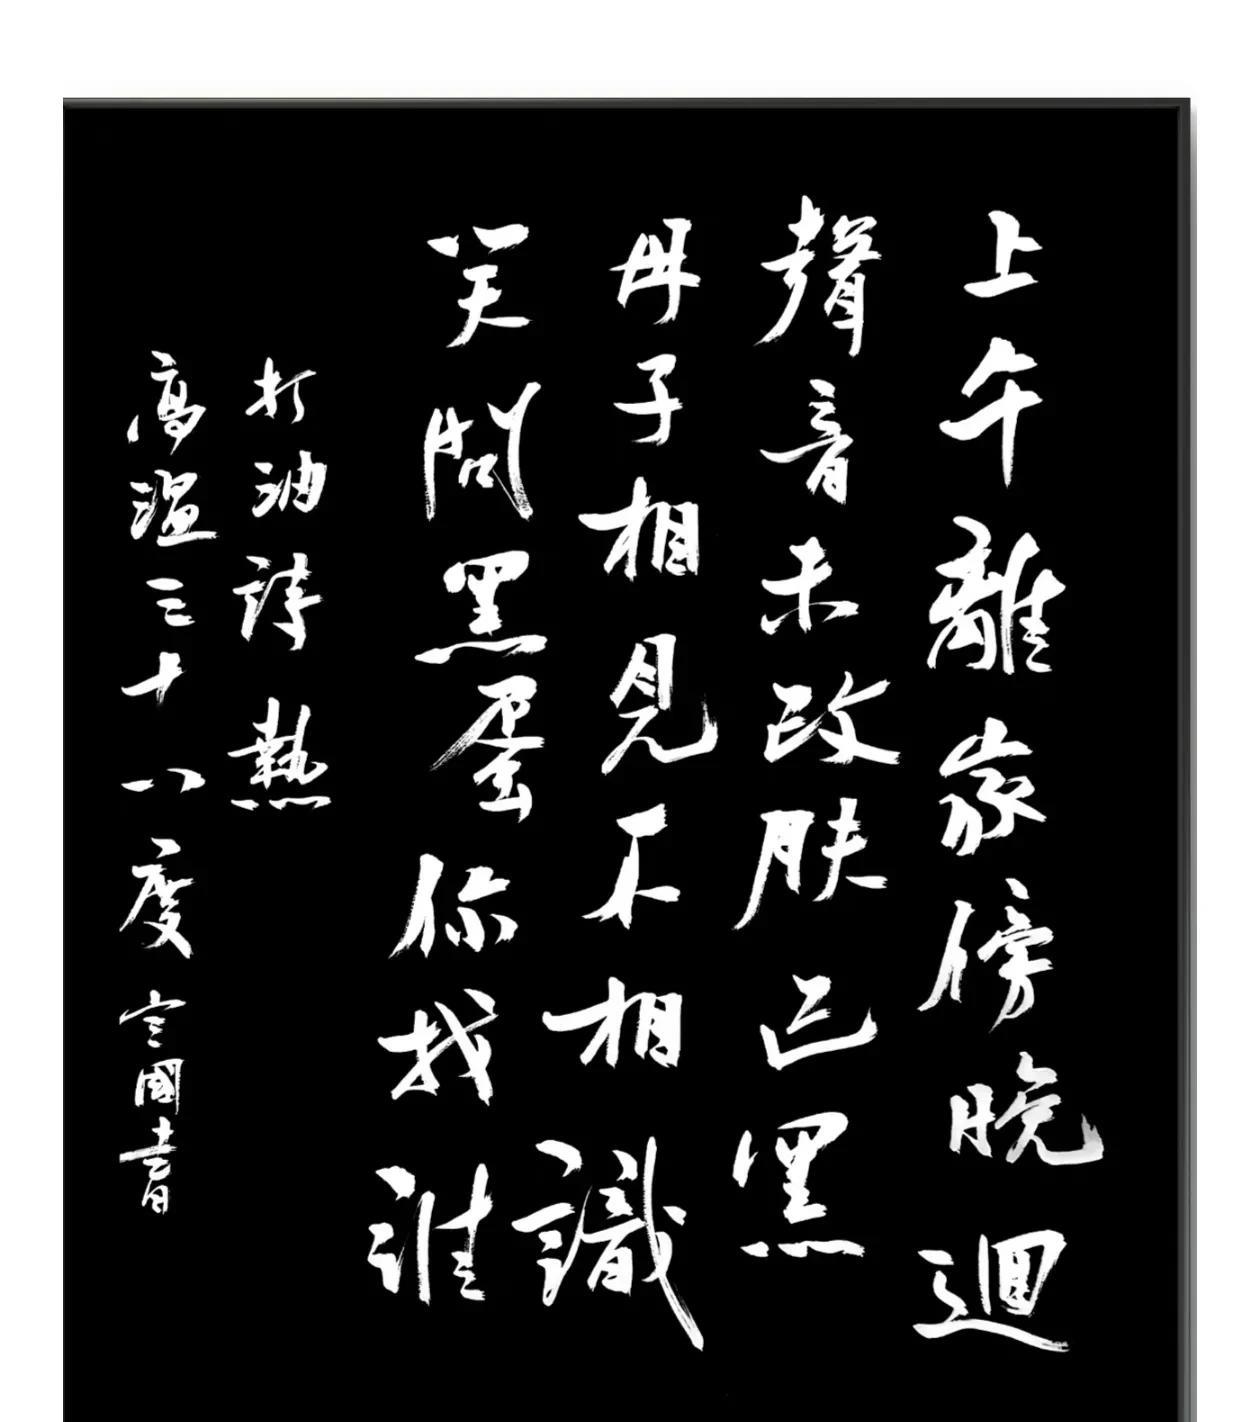 上午離家傍晚迴
聲音未改肤已黑
母子相見不相識
笑問黑蛋你找誰
打油詩熱
高溫三十八度宣國書